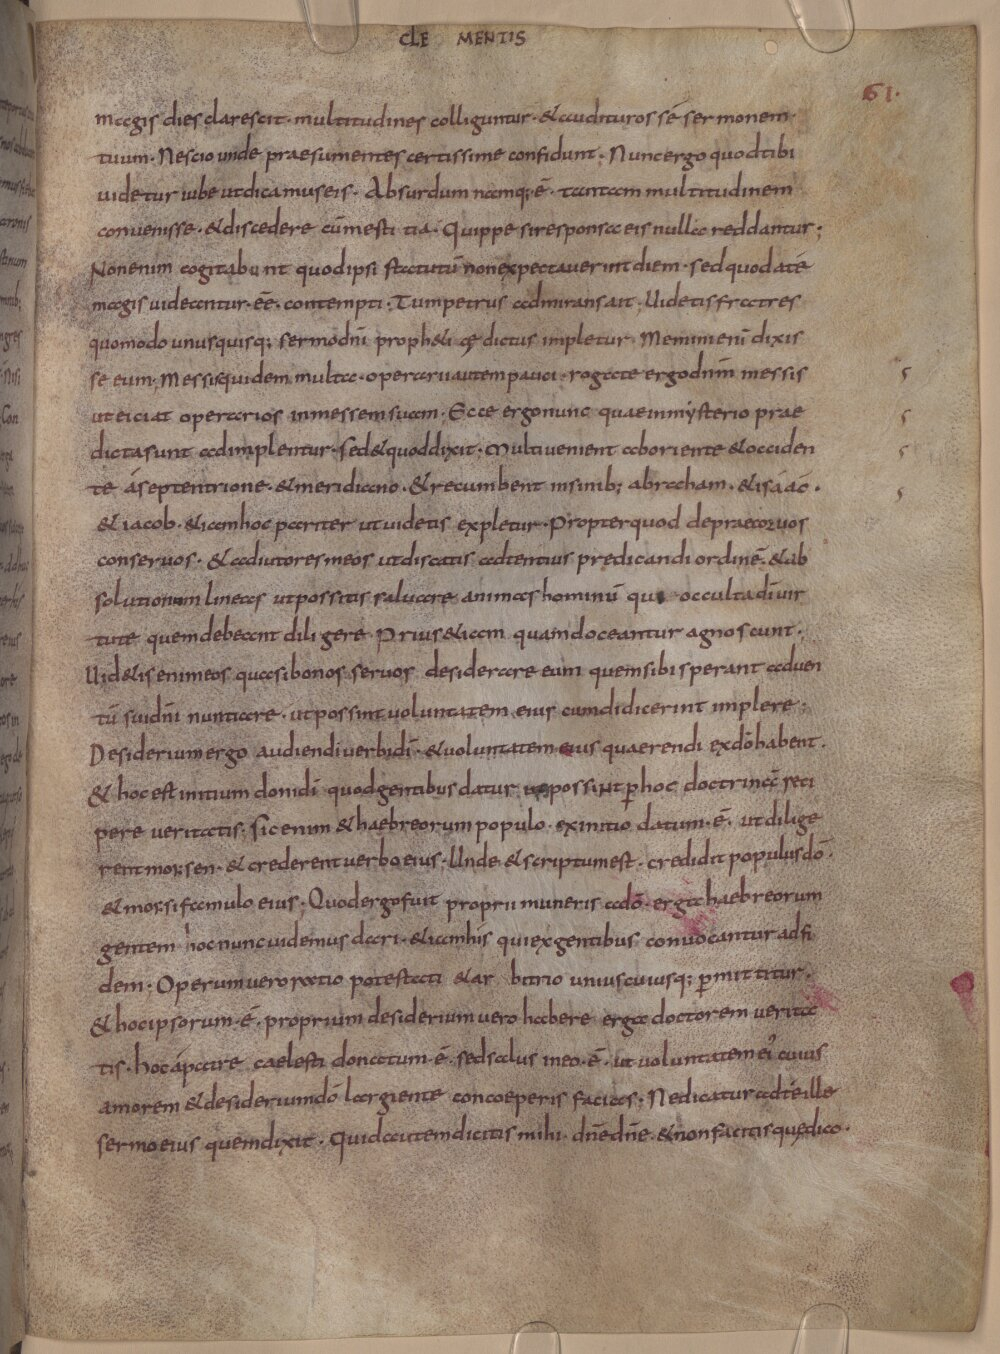 CLE MENTIS
61.
magis dies clarescit · multitudines colliguntur · & audituros sē sermonem
tuum · Nescio unde praesumentes certissime confidunt · Nunc ergo quod tibi
uidetur iube ut dicamus eis · Absurdum namq; ē · tantam multitudinem
conuenisse · & discedere cū mesti tia · Quippe si responsa eis nulla reddantur ;
Non enim cogitabunt quod ipsi statutū non expectauerint diem · sed quod a tē
magis uideantur · ēē · contempti · Tum petrus admirans ait · Uidetis fratres
quomodo unusquisq; sermo dn̄i propheticę dictus impletur · Memini enī dixis
se eum; Messis quidem multa · operarii autem pauci · rogate ergo dnm̄ messis
ut eiciat operarios in messem suam · Ecce ergo nunc quae in mysterio prae
dicta sunt adimplentur · Sed & quod dixit · Multi uenient ab oriente & occiden
te á septentrione · & meridiano · & recumbent in sinib; abraham · & isáác ·
& iacob · & iam hoc pariter ut uidetis expletur · Propter quod depraecor uos
conseruos · & adiutores meos ut discatis adtentius predicandi ordinē · & ab
solutionum lineas ut possitis saluare animas hominū qui occulta dī uir
tute quem debeant diligere · Prius & iam quam doceantur agnoscunt ·
Uid&is enim eos quasi bonos seruos desiderare eum quem sibi sperant aduen
tū sui dn̄i nuntiare · ut possint uoluntatem eius cum didicerint implere ;
Desiderium ergo audiendi uerbi dī · & uoluntatem eius quaerendi ex dō habent ·
& hoc est initium doni dī quod gentibus datur ut possint p̄ hoc doctrinā reci
pere ueritatis; Sic enim & haebreorum populo · ex initio datum · ē · ut dilige
rent mosen · & crederent uerbo eius · Unde & scriptum est · credidit populus dō ·
& mosi famulo eius · Quod ergo fuit proprii muneris a dō · erga haebreorum
gentem hoc nunc uidemus dari · & iam his qui ex gentibus conuocantur ad fi
dem · Operum uero ratio potestati & ar bitrio uniuscuiusq; p̄mittitur ·
& hoc ipsorum · ē · proprium desiderium uero habere erga doctorem uerita
tis · hoc á patre caelesti donatum · ē · sed salus in eo · ē · ut uoluntatem ei' cuius
amorem & desiderium dō largiente concoeperis facias · Ne dicatur ad tē ille
sermo eius quem dixit · Quid autem dicitis mihi · dn̄e dn̄e · & non facitis quę dico ·